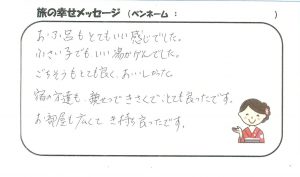 旅の幸せメッセージ (ペンネーム： )
お風呂もとてもいい感じでした。
小さい子でもいい湯かげんでした。
ごちそうもとても良く、おいしかった。
宿の方達も、親せつできさくで、とても良ったです。
お部屋も広くて き持ち良ったです。